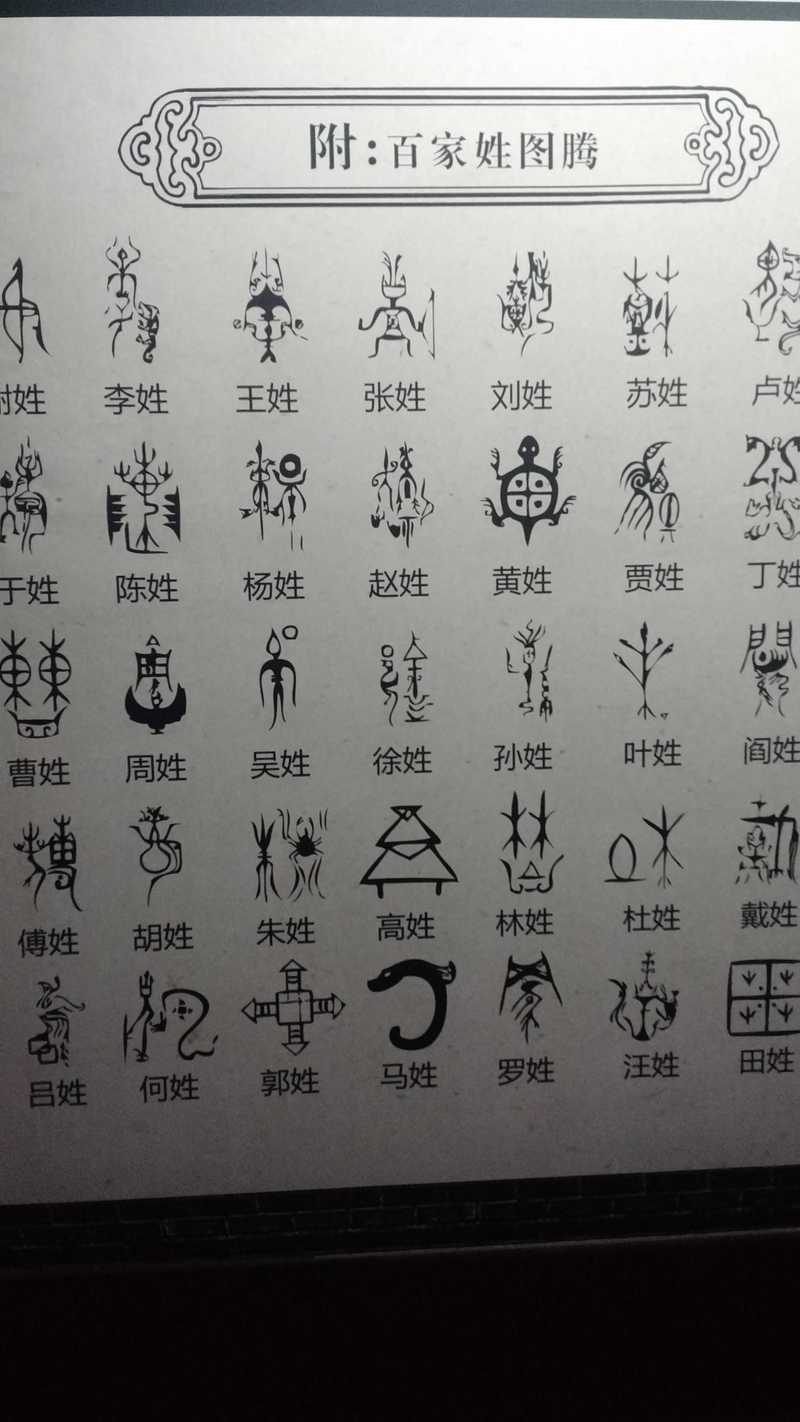 附:百家姓图腾
姓 李姓 王姓 张姓 刘姓 苏姓 卢姓
于姓 陈姓 杨姓 赵姓 黄姓 贾姓 丁姓
曹姓 周姓 吴姓 徐姓 孙姓 叶姓 阎姓
傅姓 胡姓 朱姓 高姓 林姓 杜姓 戴姓
吕姓 何姓 郭姓 马姓 罗姓 汪姓 田姓